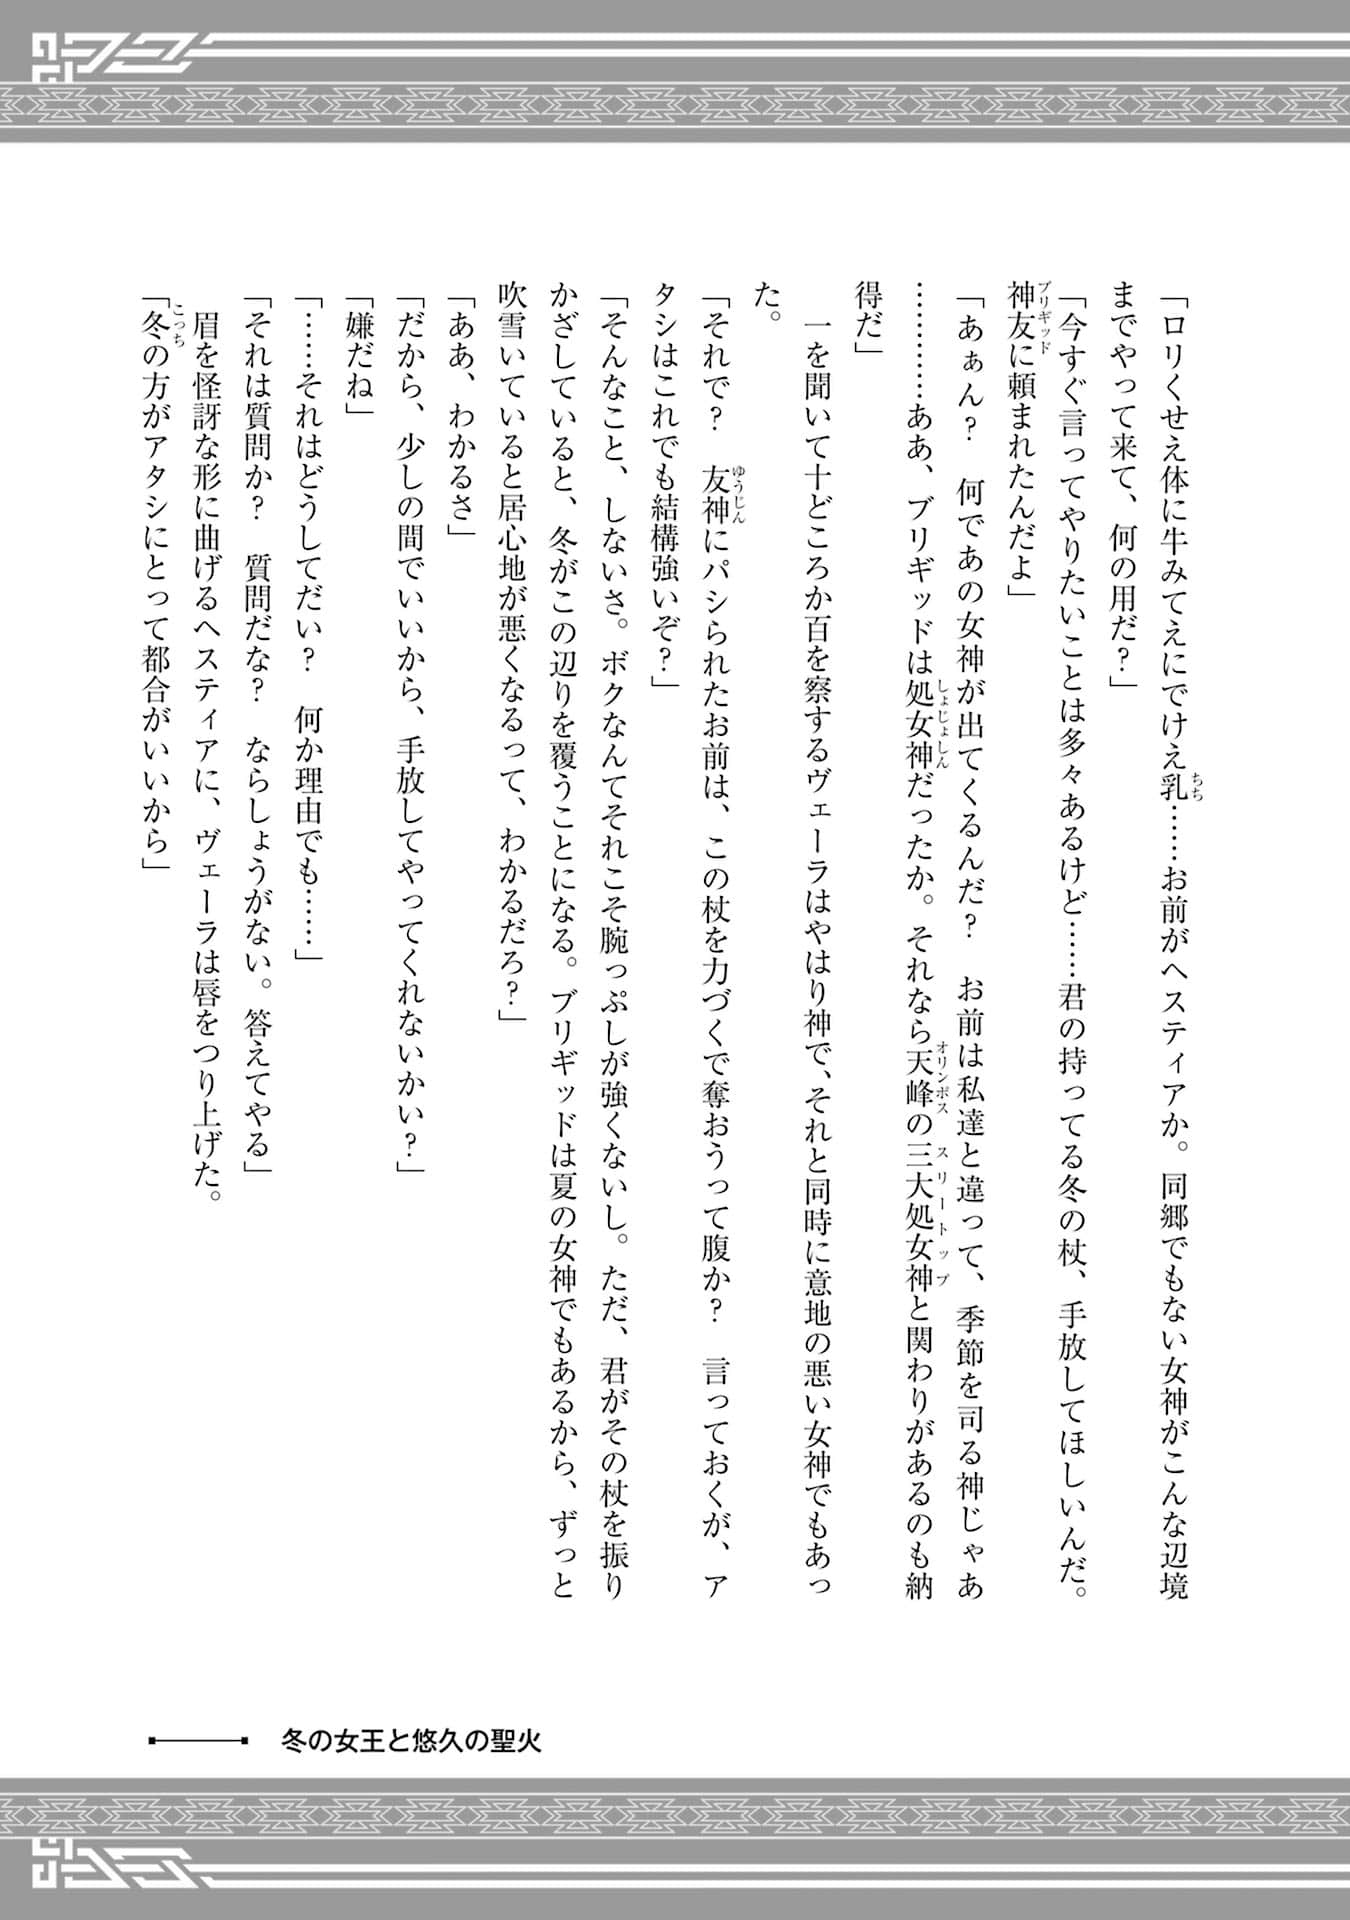 「ロリくせえ体に牛みてえにでけえ乳……お前がヘスティアか。同郷でもない女神がこんな辺境
ちち
までやって来て、何の用だ？」
「今すぐ言ってやりたいことは多々あるけど……君の持ってる冬の杖、手放してほしいんだ。
神友に頼まれたんだよ」
ブリギッド
「あぁん？　何であの女神が出てくるんだ？　お前は私達と違って、季節を司る神じゃあ
…………ああ、ブリギッドは処女神だったか。それなら天峰の三大処女神と関わりがあるのも納
しょじょしん
オリンポス
スリートップ
得だ」
　一を聞いて十どころか百を察するヴェーラはやはり神で、それと同時に意地の悪い女神でもあっ
た。
「それで？　友神にパシられたお前は、この杖を力づくで奪おうって腹か？　言っておくが、ア
ゆうじん
タシはこれでも結構強いぞ？」
「そんなこと、しないさ。ボクなんてそれこそ腕っぷしが強くないし。ただ、君がその杖を振り
かざしていると、冬がこの辺りを覆うことになる。ブリギッドは夏の女神でもあるから、ずっと
吹雪いていると居心地が悪くなるって、わかるだろ？」
「ああ、わかるさ」
「だから、少しの間でいいから、手放してやってくれないかい？」
「嫌だね」
「……それはどうしてだい？　何か理由でも……」
「それは質問か？　質問だな？　ならしょうがない。答えてやる」
　眉を怪訝な形に曲げるヘスティアに、ヴェーラは唇をつり上げた。
「冬の方がアタシにとって都合がいいから」
こっち
冬の女王と悠久の聖火